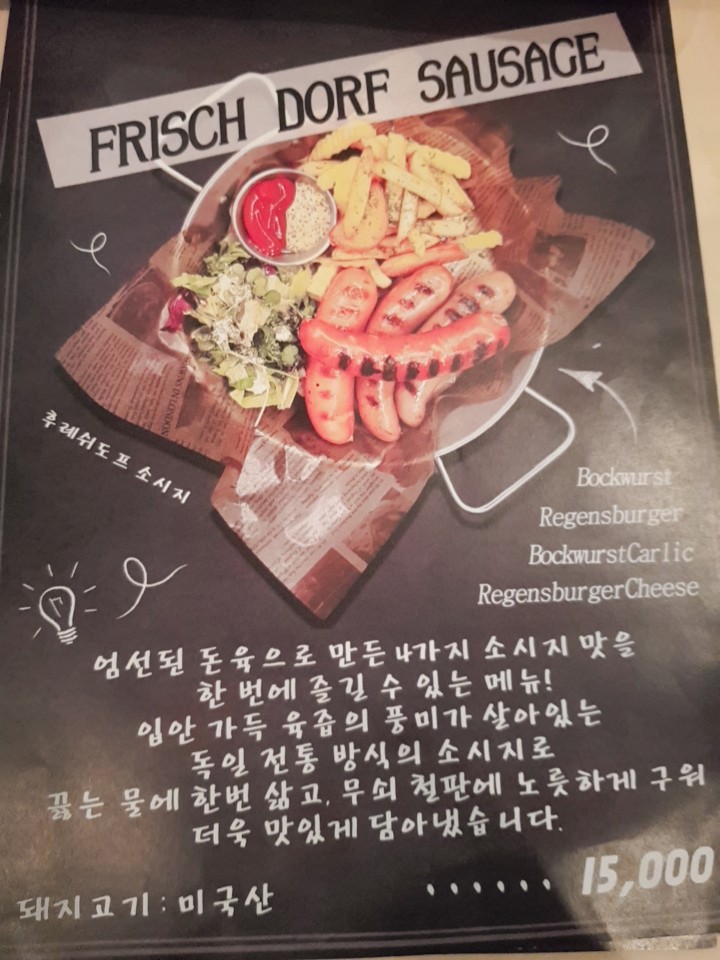 FRISCH DORF SAUSAGE
후레쉬도프 소시지
Bockwurst
Regensburger
BockwurstCarlic
RegensburgerCheese
엄선된 돈육으로 만든 4가지 소시지 맛을
한 번에 즐길 수 있는 메뉴!
입안 가득 육즙의 풍미가 살아있는
독일 전통 방식의 소시지로
끓는 물에 한번 삶고, 무쇠 철판에 노릇하게 구워
더욱 맛있게 담아냈습니다.
돼지고기 : 미국산 ...... 15,000